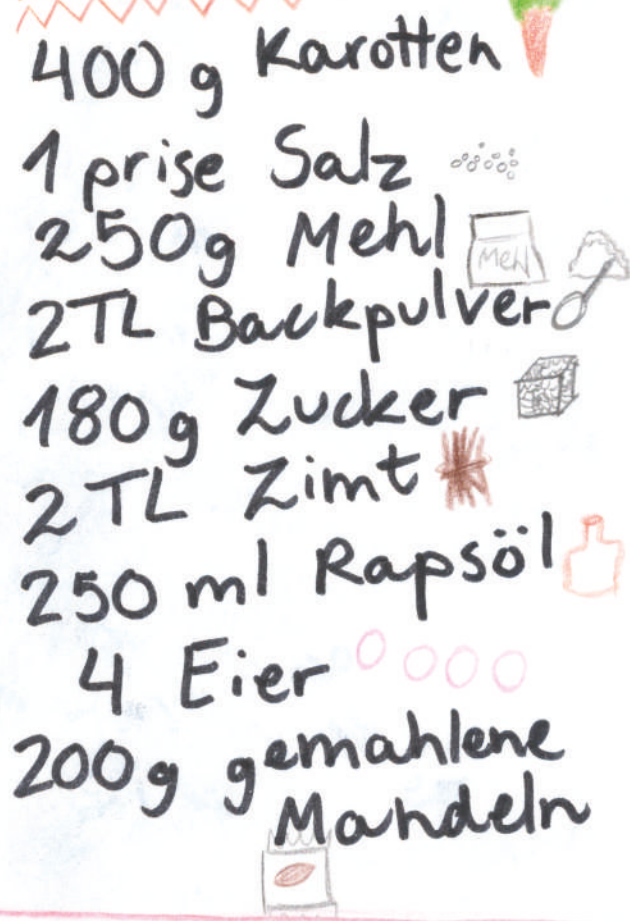 400 g Karotten
1 prise Salz
250g Mehl
Mehl
2TL Backpulver
180g Zucker
2TL Zimt
250 ml Rapsöl
4 Eier
200g gemahlene
Mandeln